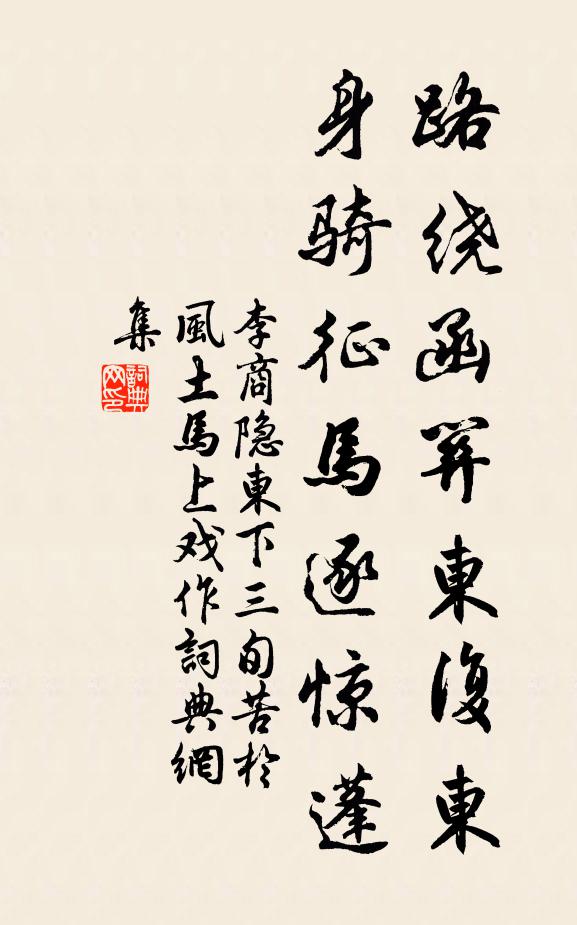 路绕函関東復東
身骑征馬逐惊蓬
李商隐東下三旬苦於
風土馬上戏作詞典網
集
詞典网印